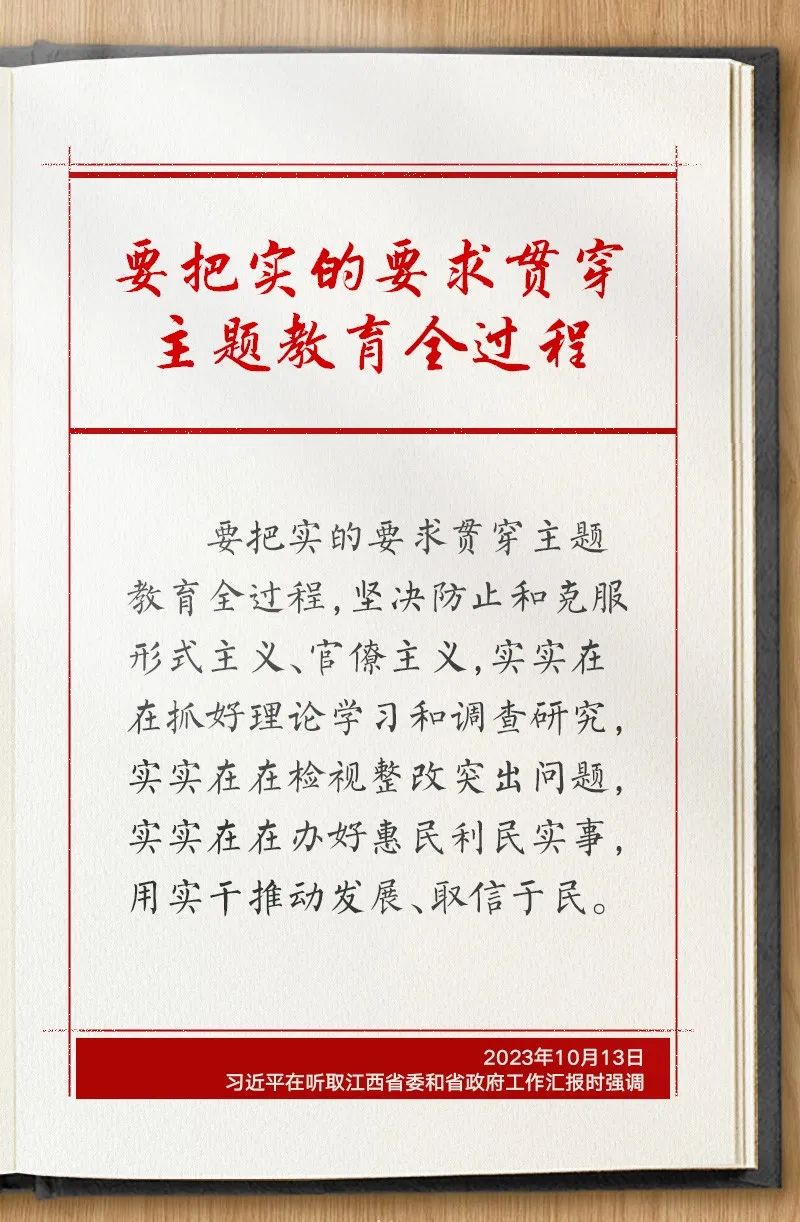 要把实的要求贯穿
主题教育全过程
要把实的要求贯穿主题
教育全过程,坚决防止和克服
形式主义、官僚主义,实实在
在抓好理论学习和调查研究,
实实在在检视整改突出问题,
实实在在办好惠民利民实事,
用实干推动发展、取信于民。
2023年10月13日
习近平在听取江西省委和省政府工作汇报时强调